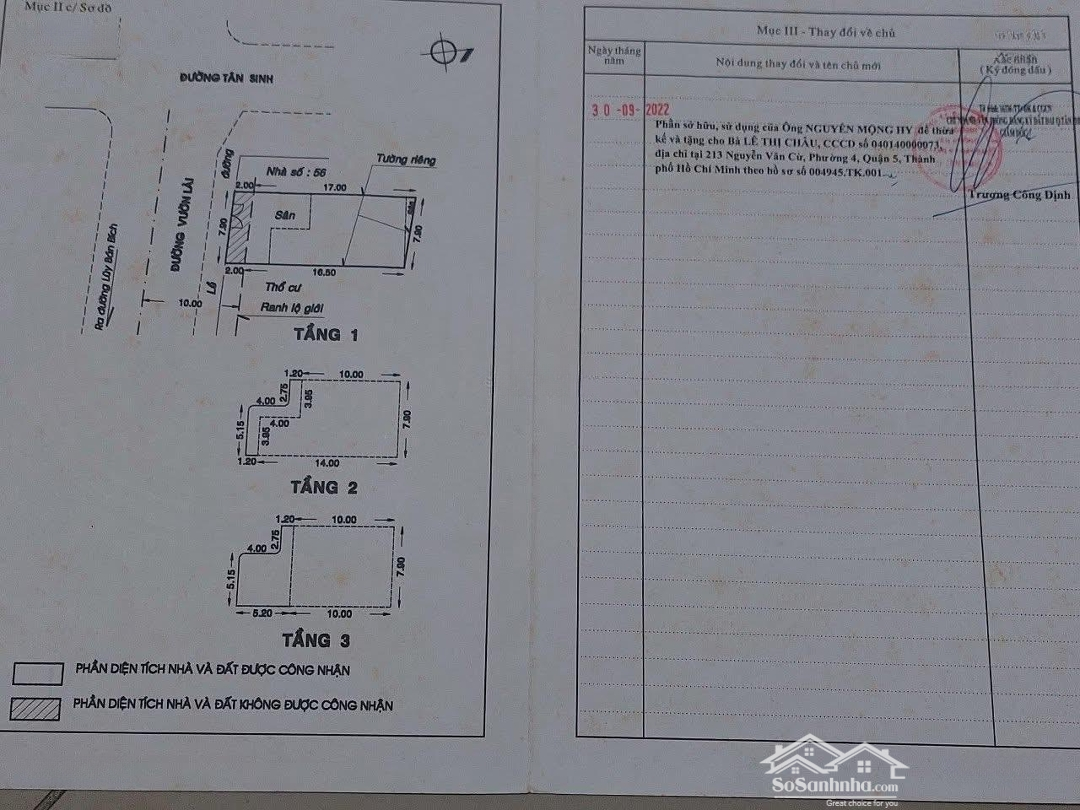 Mục II c/ Sơ đồ
ĐƯỜNG TÂN SINH
ĐƯỜNG VƯỜN LÀI
Ra đường Lũy Bán Bích
đường
Lề
Nhà số : 56
Tường riêng
2.00
17.00
Sân
7.90
7.90
2.00
16.50
10.00
Thổ cư
Ranh lộ giới
TẦNG 1
1.20
10.00
2.75
3.95
4.00
4.00
5.15
3.95
7.90
1.20
14.00
TẦNG 2
1.20
10.00
2.75
4.00
5.15
7.90
5.20
10.00
TẦNG 3
PHẦN DIỆN TÍCH NHÀ VÀ ĐẤT ĐƯỢC CÔNG NHẬN
PHẦN DIỆN TÍCH NHÀ VÀ ĐẤT KHÔNG ĐƯỢC CÔNG NHẬN
Mục III - Thay đổi về chủ
Ngày tháng
năm
Nội dung thay đổi và tên chủ mới
Xác nhận
( Ký đóng dấu )
30 -09- 2022
Phần sở hữu, sử dụng của Ông NGUYỄN MỘNG HY để thừa
kế và tặng cho Bà LÊ THỊ CHÂU, CCCD số 040140000073,
địa chỉ tại 213 Nguyễn Văn Cừ, Phường 4, Quận 5, Thành
phố Hồ Chí Minh theo hồ sơ số 004945.TK.001
GIÁM ĐỐC
Trương Công Định
SoSanhnha.com
Great choice for you